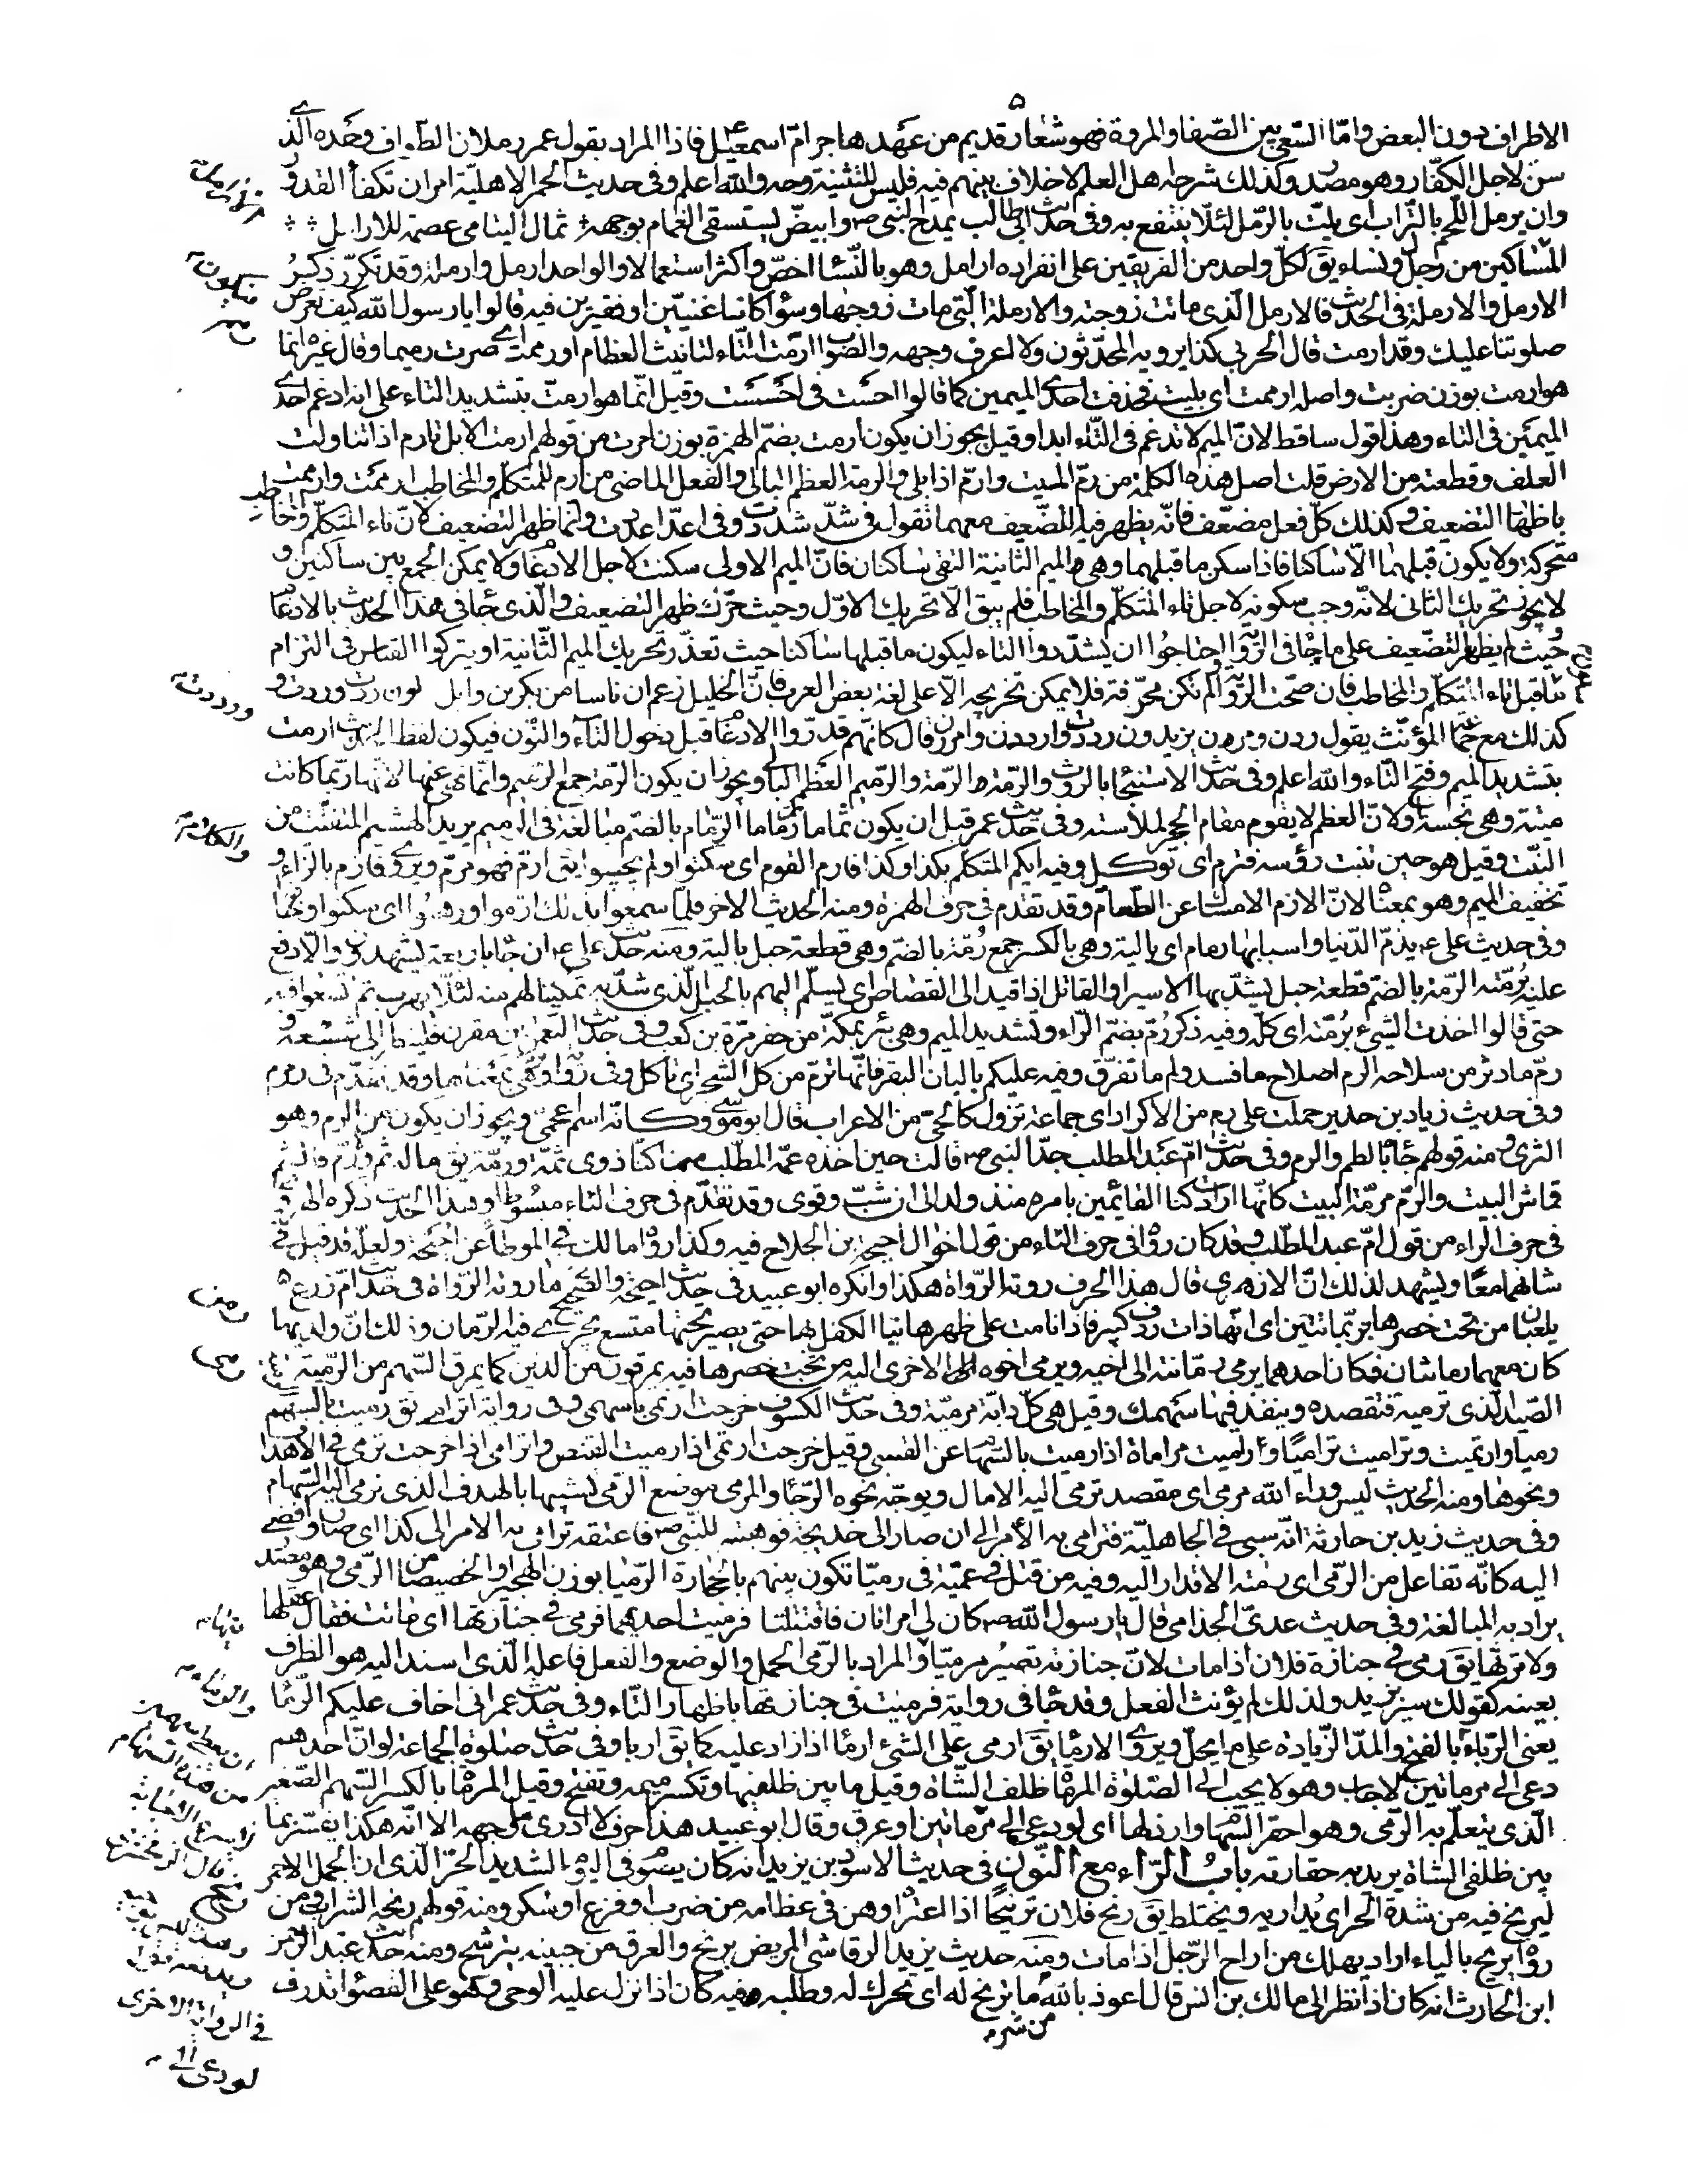 الاطراف دون البعض وامّا السّعی بین الصّفا والمروة فهو شعار قدیم من عهد هاجر امّ اسمعیل فاذا المراد بقول عمر رملان الطّواف وحده الّذی
سنّ لاجل الکفّار وهو مصدر وکذلک شرحه اهل العلم لا خلاف بینهم فیه فلیس للتثنیة وجه والله اعلم وفی حدیث الحمر الاهلیّة امر ان تکفأ القدور
وان یرمل اللّحم بالتّراب ای یلتّ بالرّمل لئلّا ینتفع به وفی حدیث ابی طالب یمدح النبی ص وابیضّ یستسقی الغمام بوجهه ثمال الیتامی عصمة للارامل
المساکین من رجل ونساء یق لکلّ واحد من الفریقین علی انفراده ارامل وهو بالنّساء اخصّ واکثر استعمالا والواحد ارمل وارملة وقد تکرّر ذکر
الارمل والارملة فی الحدیث فالارمل الّذی ماتت زوجته والارملة الّتی مات زوجها وسواء کانا غنیّین او فقیرین فیه قالوا یا رسول الله کیف تعرض
صلوتنا علیک وقد ارمت قال الحربی کذا یرویه المحدّثون ولا اعرف وجهه والصّواب ارمّت التّاء لتانیث العظام او رممت ای صرت رمیما وقال غیره انّما
هو ارمت بوزن ضربت واصله ارممت ای بلیت فحذفت احدی المیمین کما قالوا احست فی احسست وقیل انّما هو ارمتّ بتشدید التاء علی انه ادغم احدی
المیمین فی التاء وهذا قول ساقط لانّ المیم لا تدغم فی التّاء ابدا وقیل یجوز ان یکون ارمت بضمّ الهمزة بوزن امرت من قولهم ارمت الابل تارم اذا تناولت
العلف وقطعته من الارض قلت اصل هذه الکلمة من رمّ المیت وارمّ اذا بلی والرمة العظم البالی والفعل الماضی من ارم للمتکلّم والمخاطب ارممت وارممت
باظهار التضعیف وکذلک کلّ فعل مضعّف فانّه یظهر فیه التضعیف معهما تقول فی شدّ شددت وفی اعدّ اعددت وانّما ظهر التضعیف لانّ تاء المتکلّم والمخاطب
متحرکة ولا یکون قبلهما الّا ساکنا فاذا سکن ما قبلها وهی المیم الثانیة التقی ساکنان فانّ المیم الاولی سکنت لاجل الادغام ولا یمکن الجمع بین ساکنین و
لا یجوز تحریک الثانی لانّه وجب سکونه لاجل تاء المتکلّم والمخاطب فلم یبق الّا تحریک الاوّل وحیث حرّک ظهر التضعیف والّذی جاء فی هذا الحدیث بالادغام
حیث لم یظهر التضعیف علی ما جاء فی الرّوایة احتاجوا ان یشدّدوا التاء لیکون ما قبلها ساکنا حیث تعذّر تحریک المیم الثّانیة او یترکوا القیاس فی التزام
ما قبل تاء المتکلّم والمخاطب فان صحّت الرّوایة ولم تکن محرّفة فلا یمکن تخریجه الّا علی لغة بعض العرب فانّ الخلیل زعم ان ناسا من بکر بن وائل یقولون ردّت وردّت و
کذلک مع جماعة المؤنّث یقول ردن ومرن یریدون رددت وارددن وامررن قال کانّهم قدّروا الادغام قبل دخول التّاء والنّون فیکون لفظ الحدیث ارمت
بتشدید المیم وفتح التّاء والله اعلم وفی حدیث الاستنجاء بالروث والرّمة الرّمة والرّمیم العظم البالی ویجوز ان یکون الرّمة جمع الرّمیم وانّما نهی عنها لانّها ربّما کانت
میتة وهی نجسة ولانّ العظم لا یقوم مقام الحجر لملاسته وفی حدیث عمر قبل ان یکون ثماما ثمّ رماما الرّمام بالضّم مبالغة فی الرمیم یرید الهشیم المتفتّت من
النّبت وقیل هو حین تنبت رؤسه فترم ای توکل وفیه ایکم المتکلّم بکذا وکذا فارم القوم ای سکتوا ولم یجیبوا یق ارمّ فهو مرمّ ویروی فازم بالزاء و
تخفیف المیم وهو بمعناه لانّ الازم الامساک عن الطعام وقد تقدم فی حرف الهمزة ومنه الحدیث الاخر فلمّا سمعوا بذلک ارموا ورهبوا ای سکتوا وخافوا
وفی حدیث علی ع یذمّ الدّنیا واسبابها رمام ای بالیة وهی بالکسر جمع رُمّة بالضمّ وهی قطعة حبل بالیة ومنه حدیث علی ع ان جاء باربعة یشهدون والّا دفع
علیه برُمّته الرّمة بالضمّ قطعة حبل یشدّ بها الاسیر او القاتل اذا قید الی القصاص ای یسلّم الیهم بالحبل الّذی شدّ به تمکینا لهم منه لئلّا یهرب ثم اتسعوا فیه
حتی قالوا اخذت الشیء برُمّته ای کلّه وفیه ذکر رُمّ بضمّ الرّاء وتشدید المیم وهی بئر بمکّة من حفر مرّة بن کعب وفی حدیث النعمان بن مقرن فلینظر الی شسعه و
رمّ ما دثر من سلاحه الرم اصلاح ما فسد ولم ما تفرّق وفیه علیکم بالبان البقر فانّها ترمّ من کل الشجر ای تاکل وفی روایة ترتمّ بمعناها وقد تقدّم فی رمم
وفی حدیث زیاد بن حدیر حملت علی رم من الاکراد ای جماعة نزول کالحیّ من الاعراب قال ابو موسی وکانّه اسم عجمی ویجوز ان یکون من الرم وهو
الثری ومنه قولهم جاء بالطم والرم وفی حدیث امّ عبد المطلب جدّ النبی ص قالت حین اخذه عمّه المطّلب منها کنّا ذوی ثمّه ورمّه یق ما له ثم ولا رم فالثم
قماش البیت والرّم مرمّة البیت کانّها ارادت کنا القائمین بامره منذ ولد الی ان شبّ وقوی وقد تقدّم فی حرف الثاء مبسوطا وهذا الحدیث ذکره الهروی
فی حرف الراء من قول امّ عبد المطّلب وقد کان رواه فی حرف الثاء من قول اخوال احیحة بن الجلاح فیه وکذا رواه مالک فی الموطّا عن احیحة ولعلّه قد قیل فی
شانهما معًا ویشهد لذلک انّ الازهری قال هذا الحرف روته الرّواة هکذا وانکره ابو عبید فی حدیث احیحة والصّحیح ما روته الرّواة فی حدیث امّ زرع
یلعبان من تحت خصرها برمّانتین ای انّها ذات ردف کبیر فاذا نامت علی ظهرها نتا الکفل بها حتی یصیر تحتها متسع یجری فیه الرّمان وذلک انّ ولدیها
کان معهما رمانتان فکان احدهما یرمی رمّانته الی اخیه ویرمی اخوه الاخری الیه من تحت خصرها فیه یمرقون من الدّین کما یمرق السّهم من الرّمیة
الصّید الّذی ترمیه فتقصده وینفذ فیها سهمک وقیل هی کلّ دابّة مرمیّة وفی حدیث الکسوف خرجت ارتمی باسهمی وفی روایة اترامی یق رمیت بالسهم
رمیا وارتمیت وترامیت ترامیًا ورامیت مراماة اذا رمیت بالسّهام عن القسی وقیل خرجت ارتمی اذا رمیت القنص واترامی اذا خرجت ترمی فی الاهداف
ونحوها ومنه الحدیث لیس وراء الله مرمی ای مقصد ترمی الیه الامال ویوجّه نحوه الرّجاء والمرمی موضع الرّمی تشبیها بالهدف الذی ترمی الیه السّهام
وفی حدیث زید بن حارثة انّه سبی فی الجاهلیّة فترامی به الامر الی ان صار الی خدیجة فوهبته للنّبی ص فاعتقه ترامی به الامر الی کذا ای صار وافضی
الیه کانّه تفاعل من الرّمی ای رمته الاقدار الیه وفیه من قتل فی عمیّة فی رمیّا تکون بینهم بالحجارة الرّمیّا بوزن الهجیرا والخصیصا من الرّمی وهو مصدر
یراد به المبالغة وفی حدیث عدیّ الجذامی قال یا رسول الله ص کان لی امراتان فاقتتلتا فرمیت احدیهما فرمی فی جنازتها ای ماتت فقال اعقلها
ولا ترثها یق رمی فی جنازة فلان اذا مات لانّ جنازته تصیر مرمیّا والمراد بالرّمی الحمل والوضع والفعل فاعله الّذی اسند الیه هو الظرف
بعینه کقولک سیر بزید ولذلک لم یؤنث الفعل وقد جاء فی روایة فرمیت فی جنازتها باظهار التّاء وفی حدیث عمر انی اخاف علیکم الرّماء
یعنی الرّباء بالفتح والمدّ الزّیادة علی ما یحلّ ویروی الارماء یق ارمی علی الشیء ارماء اذا زاد علیه کما یق اربا وفی حدیث صلوة الجماعة لو انّ احدهم
دعی الی مرماتین لاجاب وهو لا یجیب الی الصّلوة المرماة ظلف الشّاة وقیل ما بین ظلفیها وتکسر میمه وتفتح وقیل المرماة بالکسر السّهم الصّغیر
الّذی یتعلّم به الرّمی وهو احقر السّهام وارذلها ای لو دعی الی مرماتین او عرق وقال ابو عبید هذا حرف لا ادری ما وجهه الا انّه هکذا یفسّر بما
بین ظلفی الشاة یرید به حقارته بابُ الرّاء مع النّون فی حدیث الاسود بن یزید انه کان یصوم فی الیوم الشدید الحرّ الّذی ان الجمل الاحمر
لیرنّح فیه من شدة الحر ای یُدار به ویختلط یق رنح فلان ترنیحًا اذا اعتراه وهن فی عظامه من ضرب او فزع او سکر ومنه قولهم رنحه الشراب ومن
رواه یریح بالیاء اراد یهلک من اراح الرّجل اذا مات ومنه حدیث یزید الرقاشی المریض یرنح والعرق من جبینه یترشح ومنه حدیث عبد الرحمن
ابن الحارث انه کان اذا نظر الی مالک بن انس قال اعوذ بالله من شر ما ترنح له ای تحرک له وطلبه وفیه کان اذا نزل علیه الوحی وهو علی القصواء تذرف